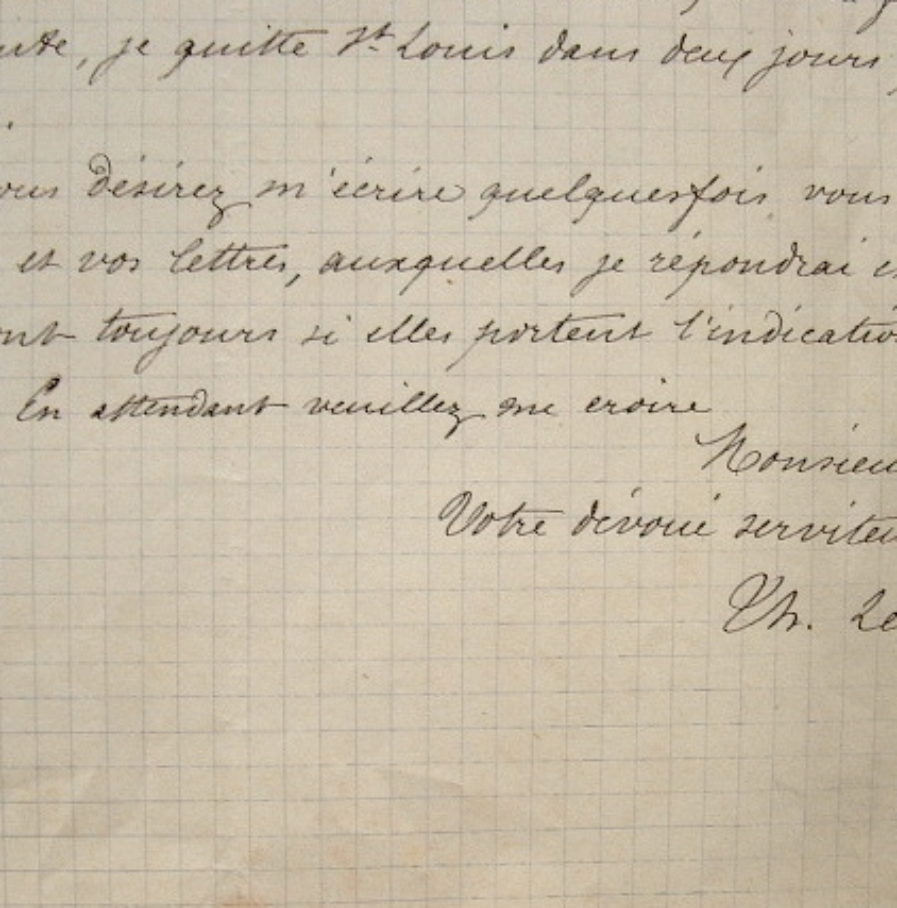 je quitte St Louis dans deux jours
désirez m'écrire quelquesfois vous
et vos lettres, auxquelles je répondrai
toujours si elles portent l'indication
En attendant veuillez me croire
Monsieu
Votre dévoué serviteu
Th. Le